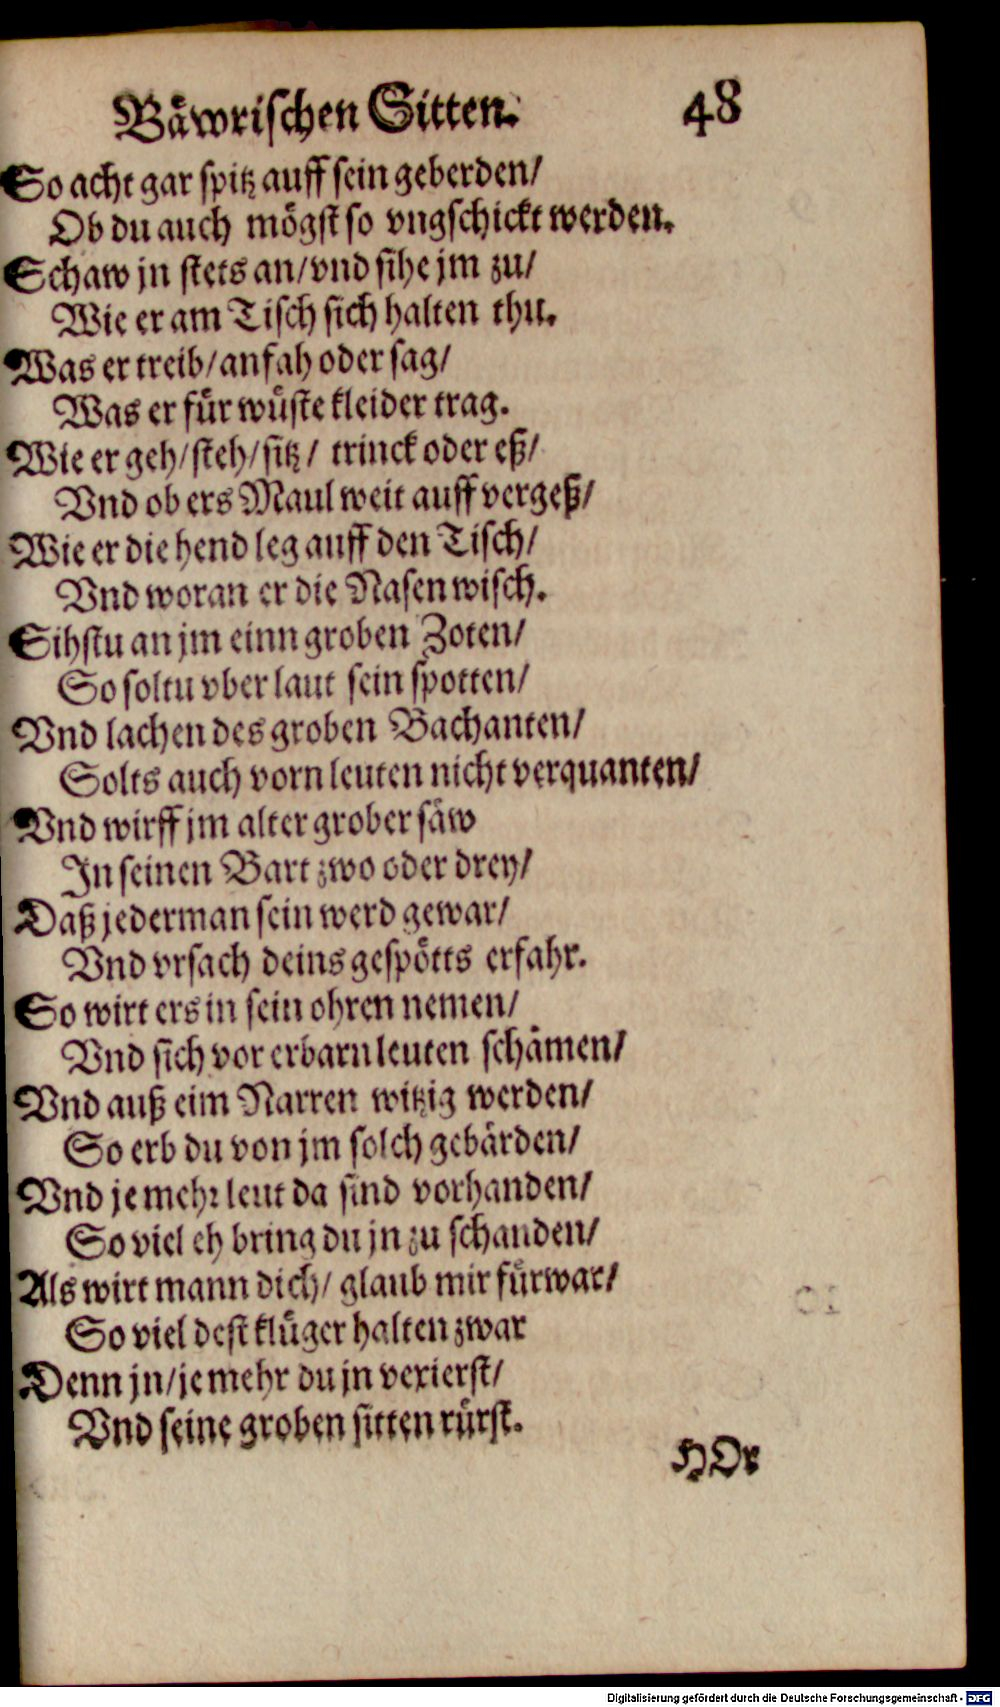 Bäwrischen Sitten. 48
So acht gar spitz auff sein geberden/
Ob du auch mögst so vngschickt werden.
Schaw jn stets an/vnd sihe jm zu/
Wie er am Tisch sich halten thu.
Was er treib/anfah oder sag/
Was er für wüste kleider trag.
Wie er geh/steh/sitz/ trinck oder eß/
Vnd ob ers Maul weit auff vergeß/
Wie er die hend leg auff den Tisch/
Vnd woran er die Nasen wisch.
Sihstu an jm einn groben Zoten/
So soltu vber laut sein spotten/
Vnd lachen des groben Bachanten/
Solts auch vorn leuten nicht verquanten/
Vnd wirff jm alter grober säw
In seinen Bart zwo oder drey/
Daß jederman sein werd gewar/
Vnd vrsach deins gespötts erfahr.
So wirt ers in sein ohren nemen/
Vnd sich vor erbarn leuten schämen/
Vnd auß eim Narren witzig werden/
So erb du von jm solch gebärden/
Vnd je mehr leut da sind vorhanden/
So viel eh bring du jn zu schanden/
Als wirt mann dich/ glaub mir fürwar/
So viel dest klüger halten zwar
Denn jn/je mehr du jn vexierst/
Vnd seine groben sitten rürst.
HOr
Digitalisierung gefördert durch die Deutsche Forschungsgemeinschaft - DFG